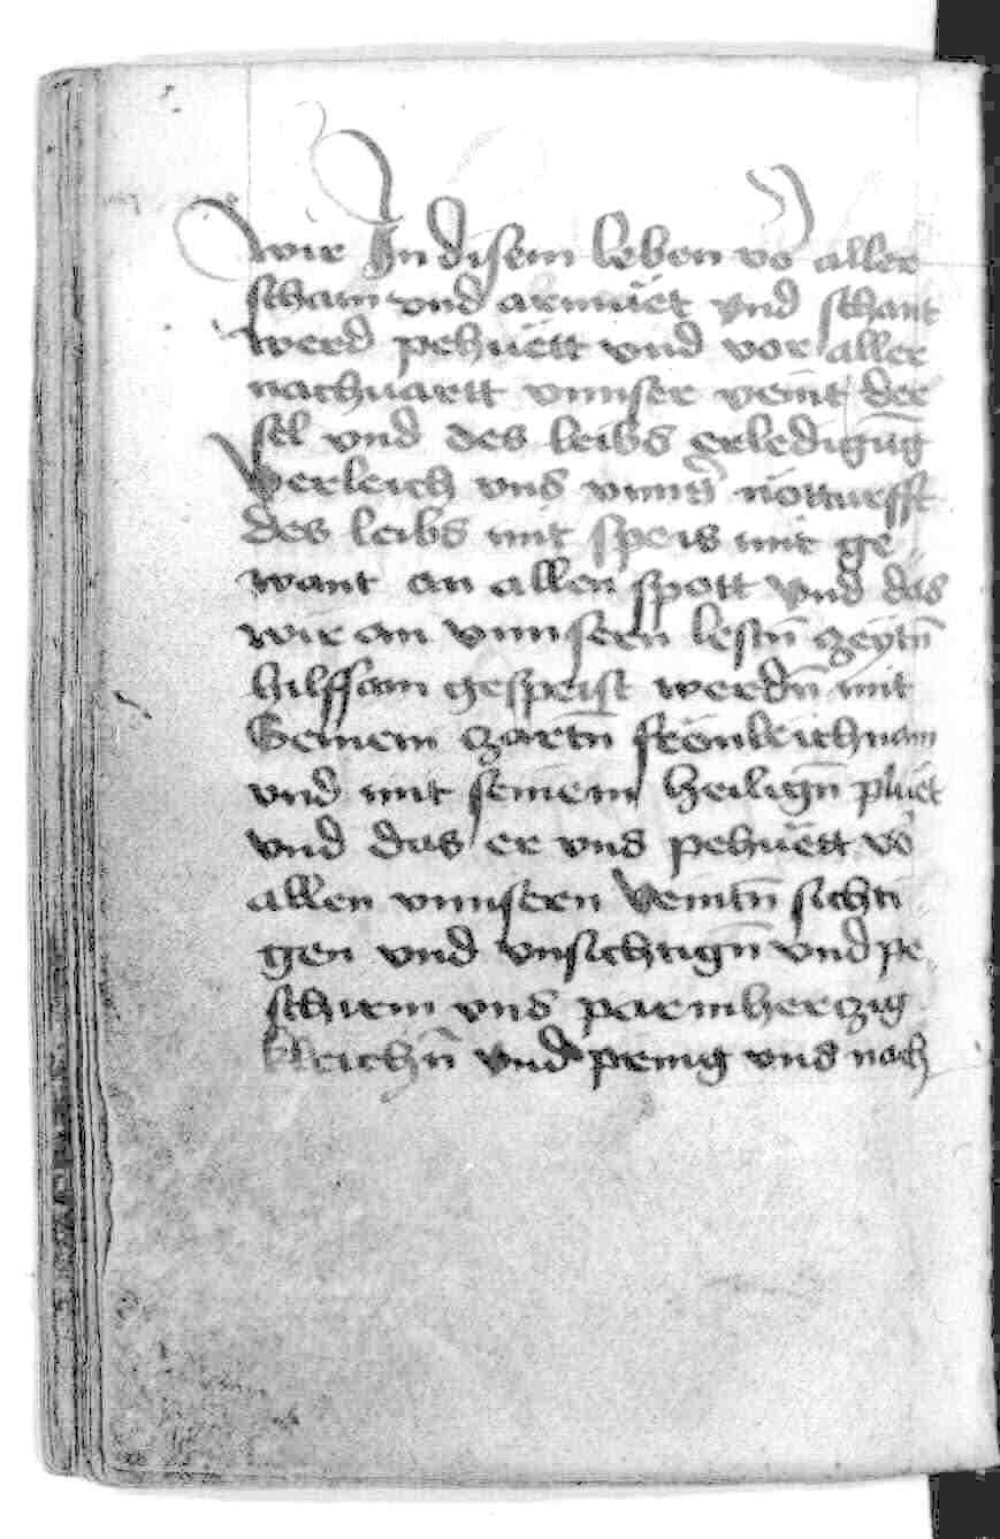 wir In disem leben vō aller
scham vnd armuet vnd schant
werd pehuett vnd vor aller
nachuartt vnnser veint der
sel vnd des leibs erledigūg
verleich vns vnnser nötturfft
des leibs mit speis mit ge
want an allen spott vnd das
wir an vnnsern lestn̄ zeytn̄
hilffsam gespeist werdn̄ mit
Seinem zartn̄ frönleichnam
vnd mit seinem heilign̄ pluet
vnd das er vns pehuett vō
allen vnnsern veintn̄ sichti
gen vnd vnsichtign̄ vnd pe
schirm vns parmherczig
kleichn̄ vnd pring vns nach